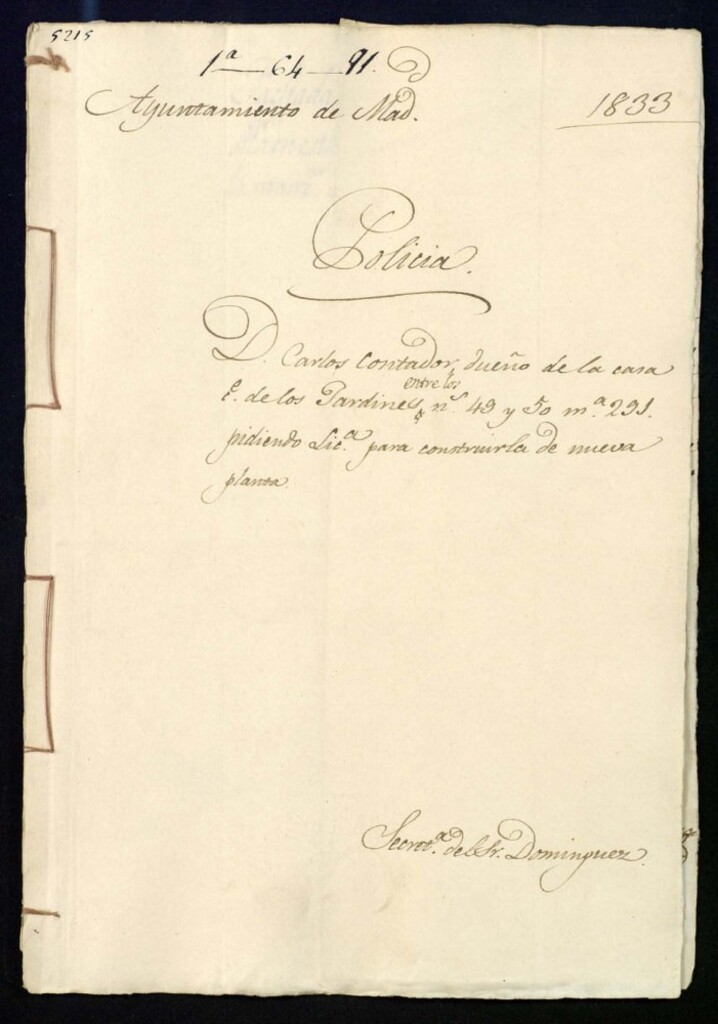 5215
1ª—64—91.
Ayuntamiento de Mad.
1833
Policia.
D. Carlos Contador, dueño de la casa
entre los
C. de los Jardines, nˢ. 49 y 50 mª. 291.
pidiendo Licª. para construirla de nueva
planta.
Secretª. del Sr. Dominguez.